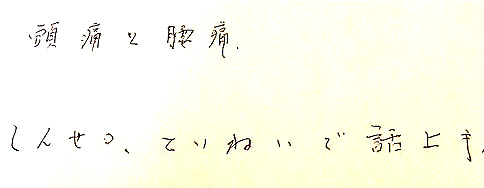 頭痛と腰痛.
しんせつ、ていねいで話上手.